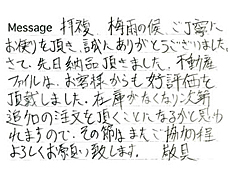 Message 拝復、梅雨の候、ご丁寧に
お便りを頂き、誠にありがとうございました。
さて、先日納品頂きました、不動産
ファイルは、お客様からも好評価を
頂戴しました。在庫がなくなり次第
追加の注文を頂くことになるかと思わ
れますので、その節はまたご協力の程
よろしくお願い致します。 敬具